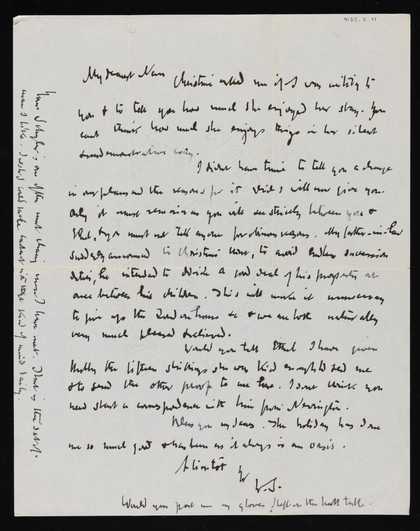 My dearest Nan Christine asked me if I was writing to
you & to tell you how much she enjoyed her stay. You
can't think how much she enjoys things in her silent
& undemonstrative way.
I didn't have time to tell you a change
in our plans and the reasons for it which I will now give you.
Only it must remain as you will see strictly between you &
Ethel, & you must not tell anyone for obvious reasons. My father-in-law
suddenly announced to Christine that, to avoid endless succession
duties, he intended to divide a good deal of his property at
once between his children. This will make it unnecessary
to give up the London house & we are both naturally
very much pleased & relieved.
Would you tell Ethel I have given
Molly the fifteen shillings she was kind enough to send me
& to send the other proof to me here. I don't think you
need start a correspondence with him from
Bless you my dears. The holiday has done
me so much good & has been as it always is an oasis.
A bientôt
Would you post me my gloves, I left on the hall table.
is one of the most charming men I have met. That is the sort of
man I like.